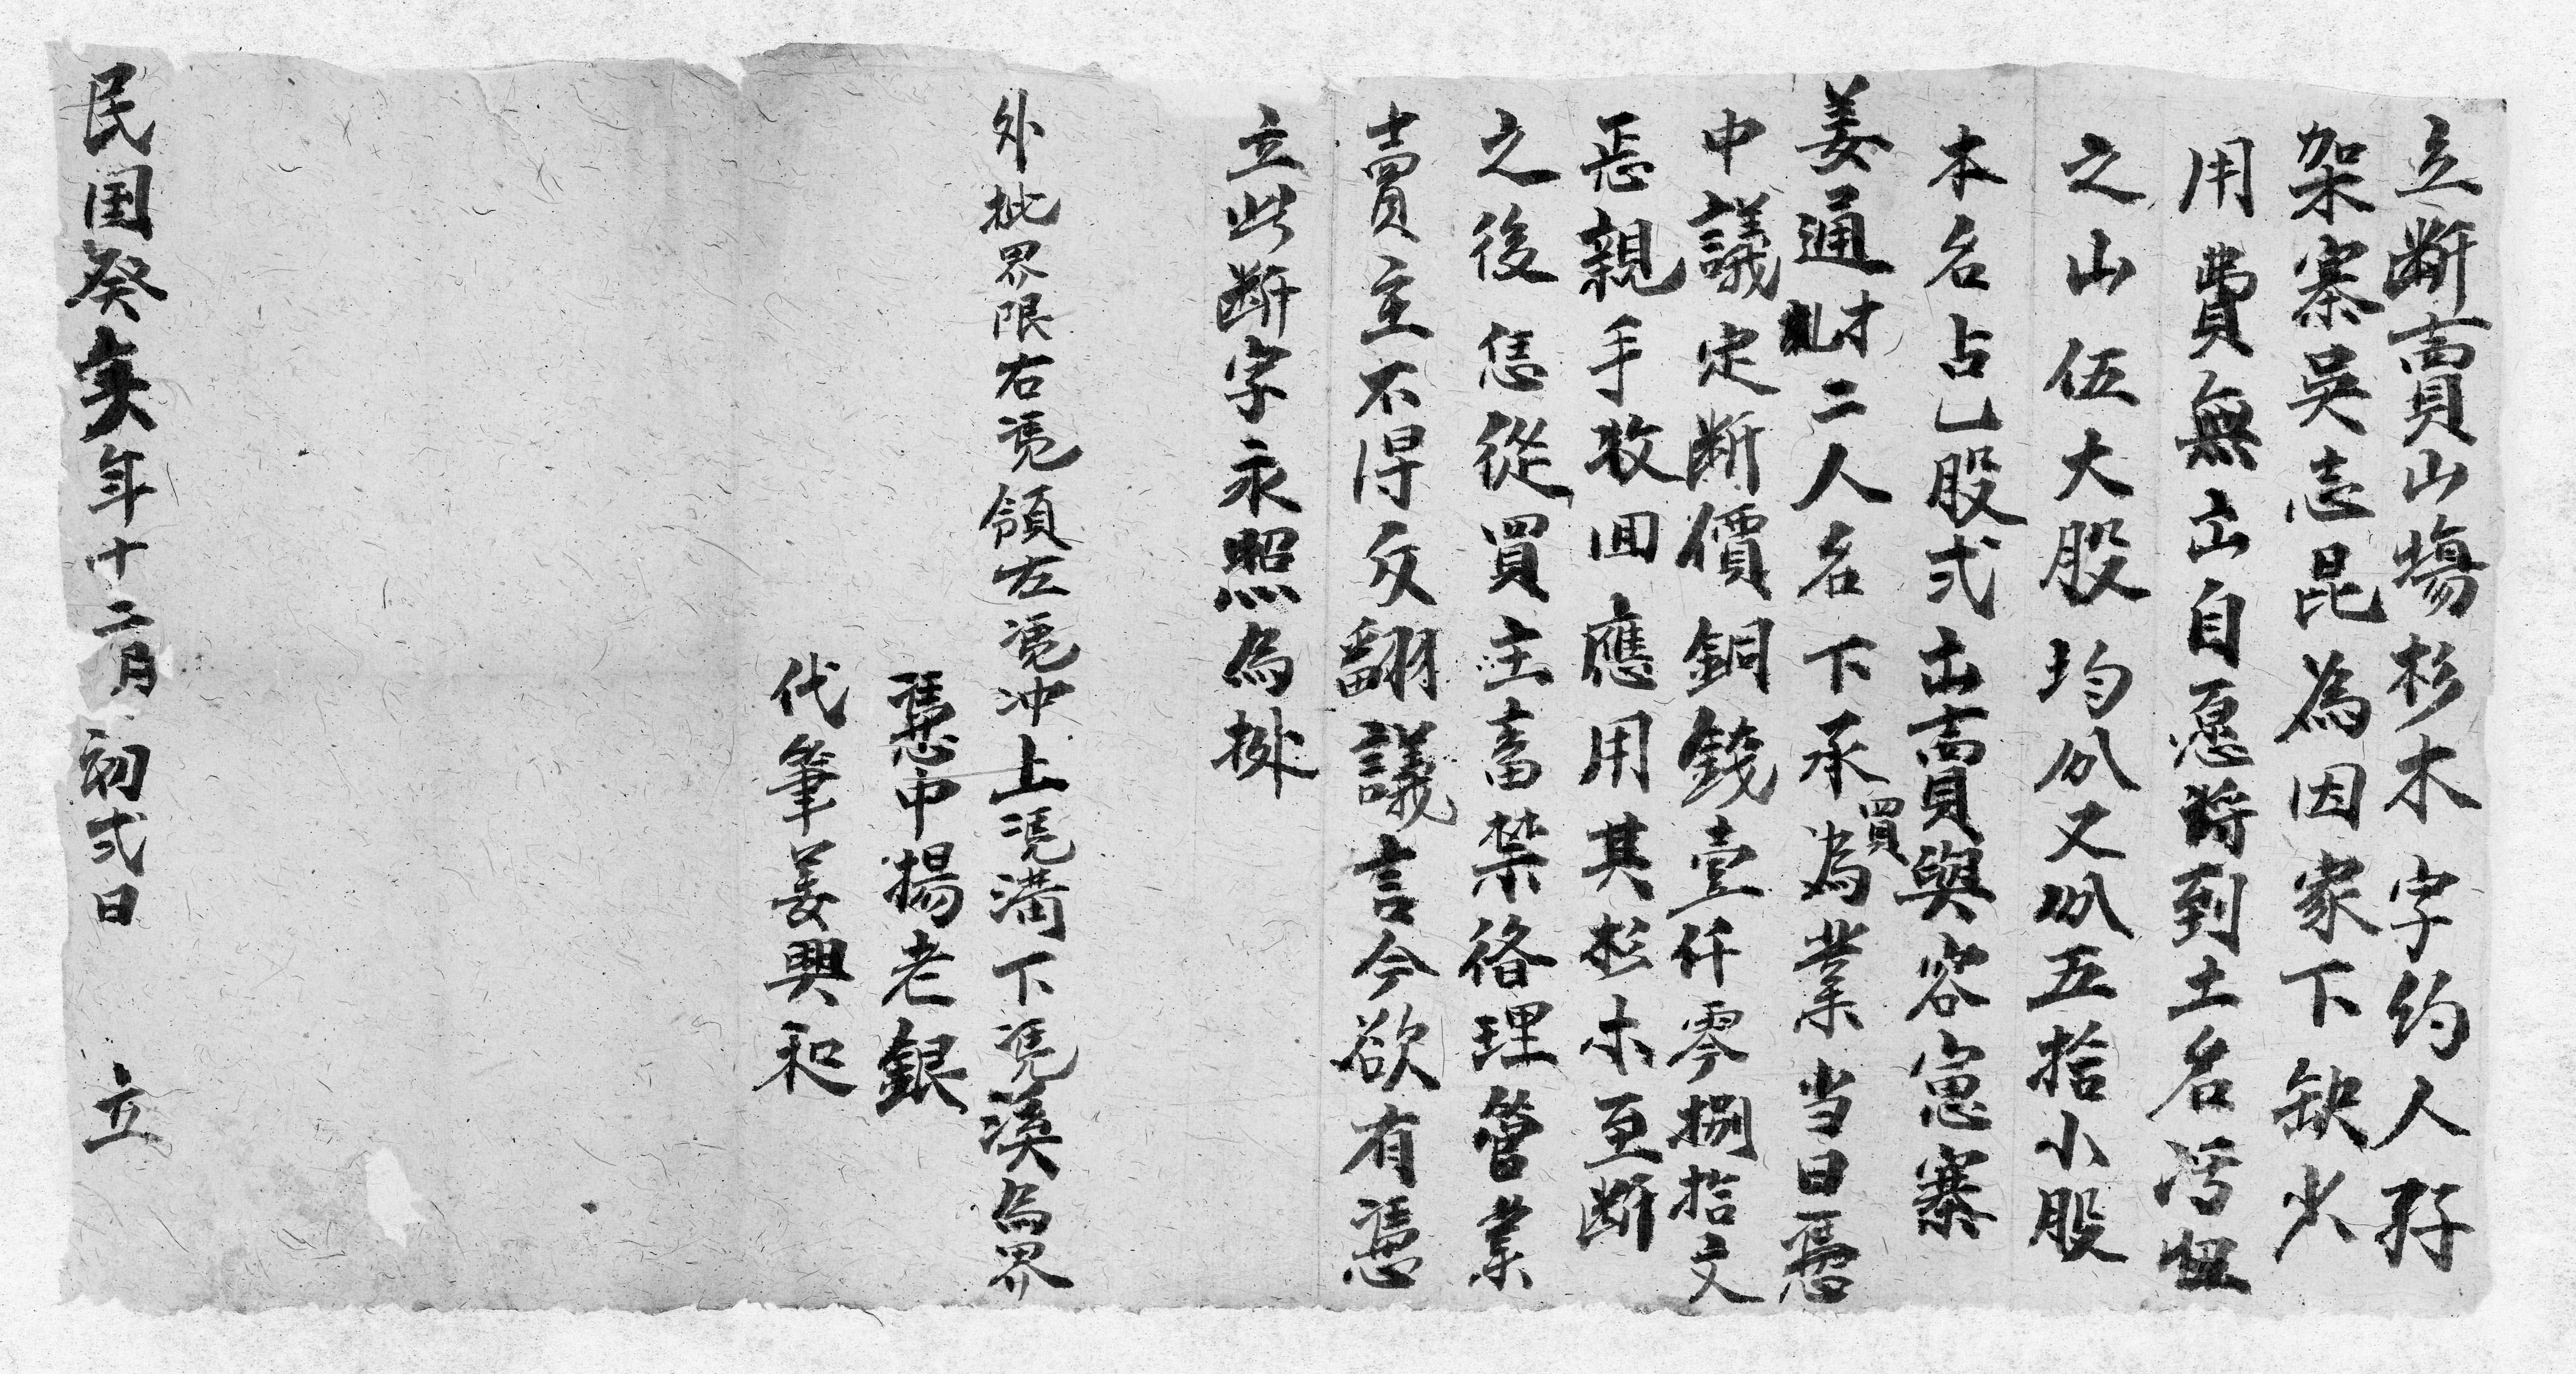 立断賣山塲杉木字約人孖
架寨吳志昆為因家下缺少
用費無出自愿将到土名污
之山伍大股均分又分五拾小股
本名占乚股弍出賣與容窓寨
姜通才二人名下承買為業当日憑
中議定断價銅錢壹仟零捌拾文
親手收回應用其杉木至断
之後恁從買主畜禁俻理管業
賣主不得反翻議言今欲有憑
立此断字永照為據
外批界限右凴領左凴冲上凴溝下凴溪為界
憑中楊老銀
代筆姜興和
民国癸亥年十二月初弍日 立